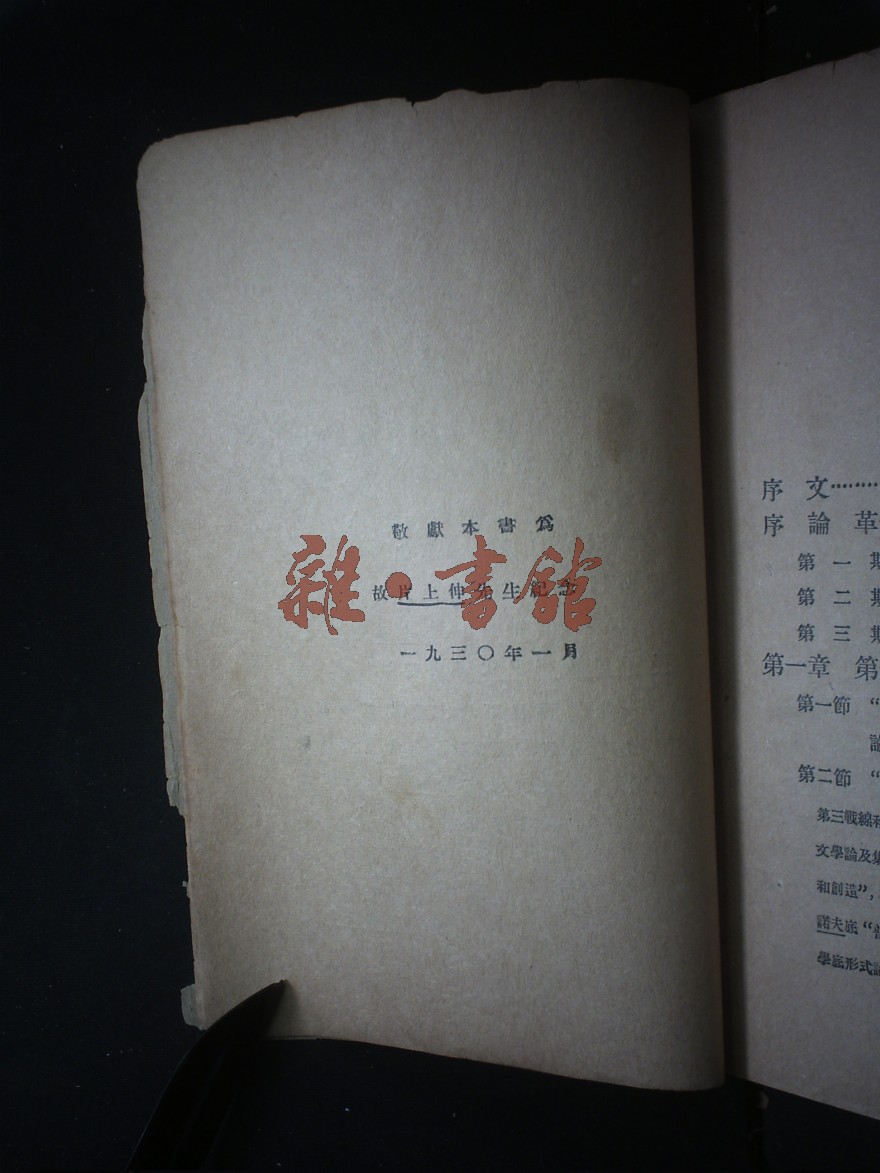 敬獻本書爲
故片上伸先生紀念
一九三〇年一月
雜·書館
序 文………
序 論 革
第 一 期
第 二 期
第 三 期
第一章 第
第一節 “
論
第二節 “
第三戰線和
文學論及集
和創造”,
諾夫底“普
學底形式論